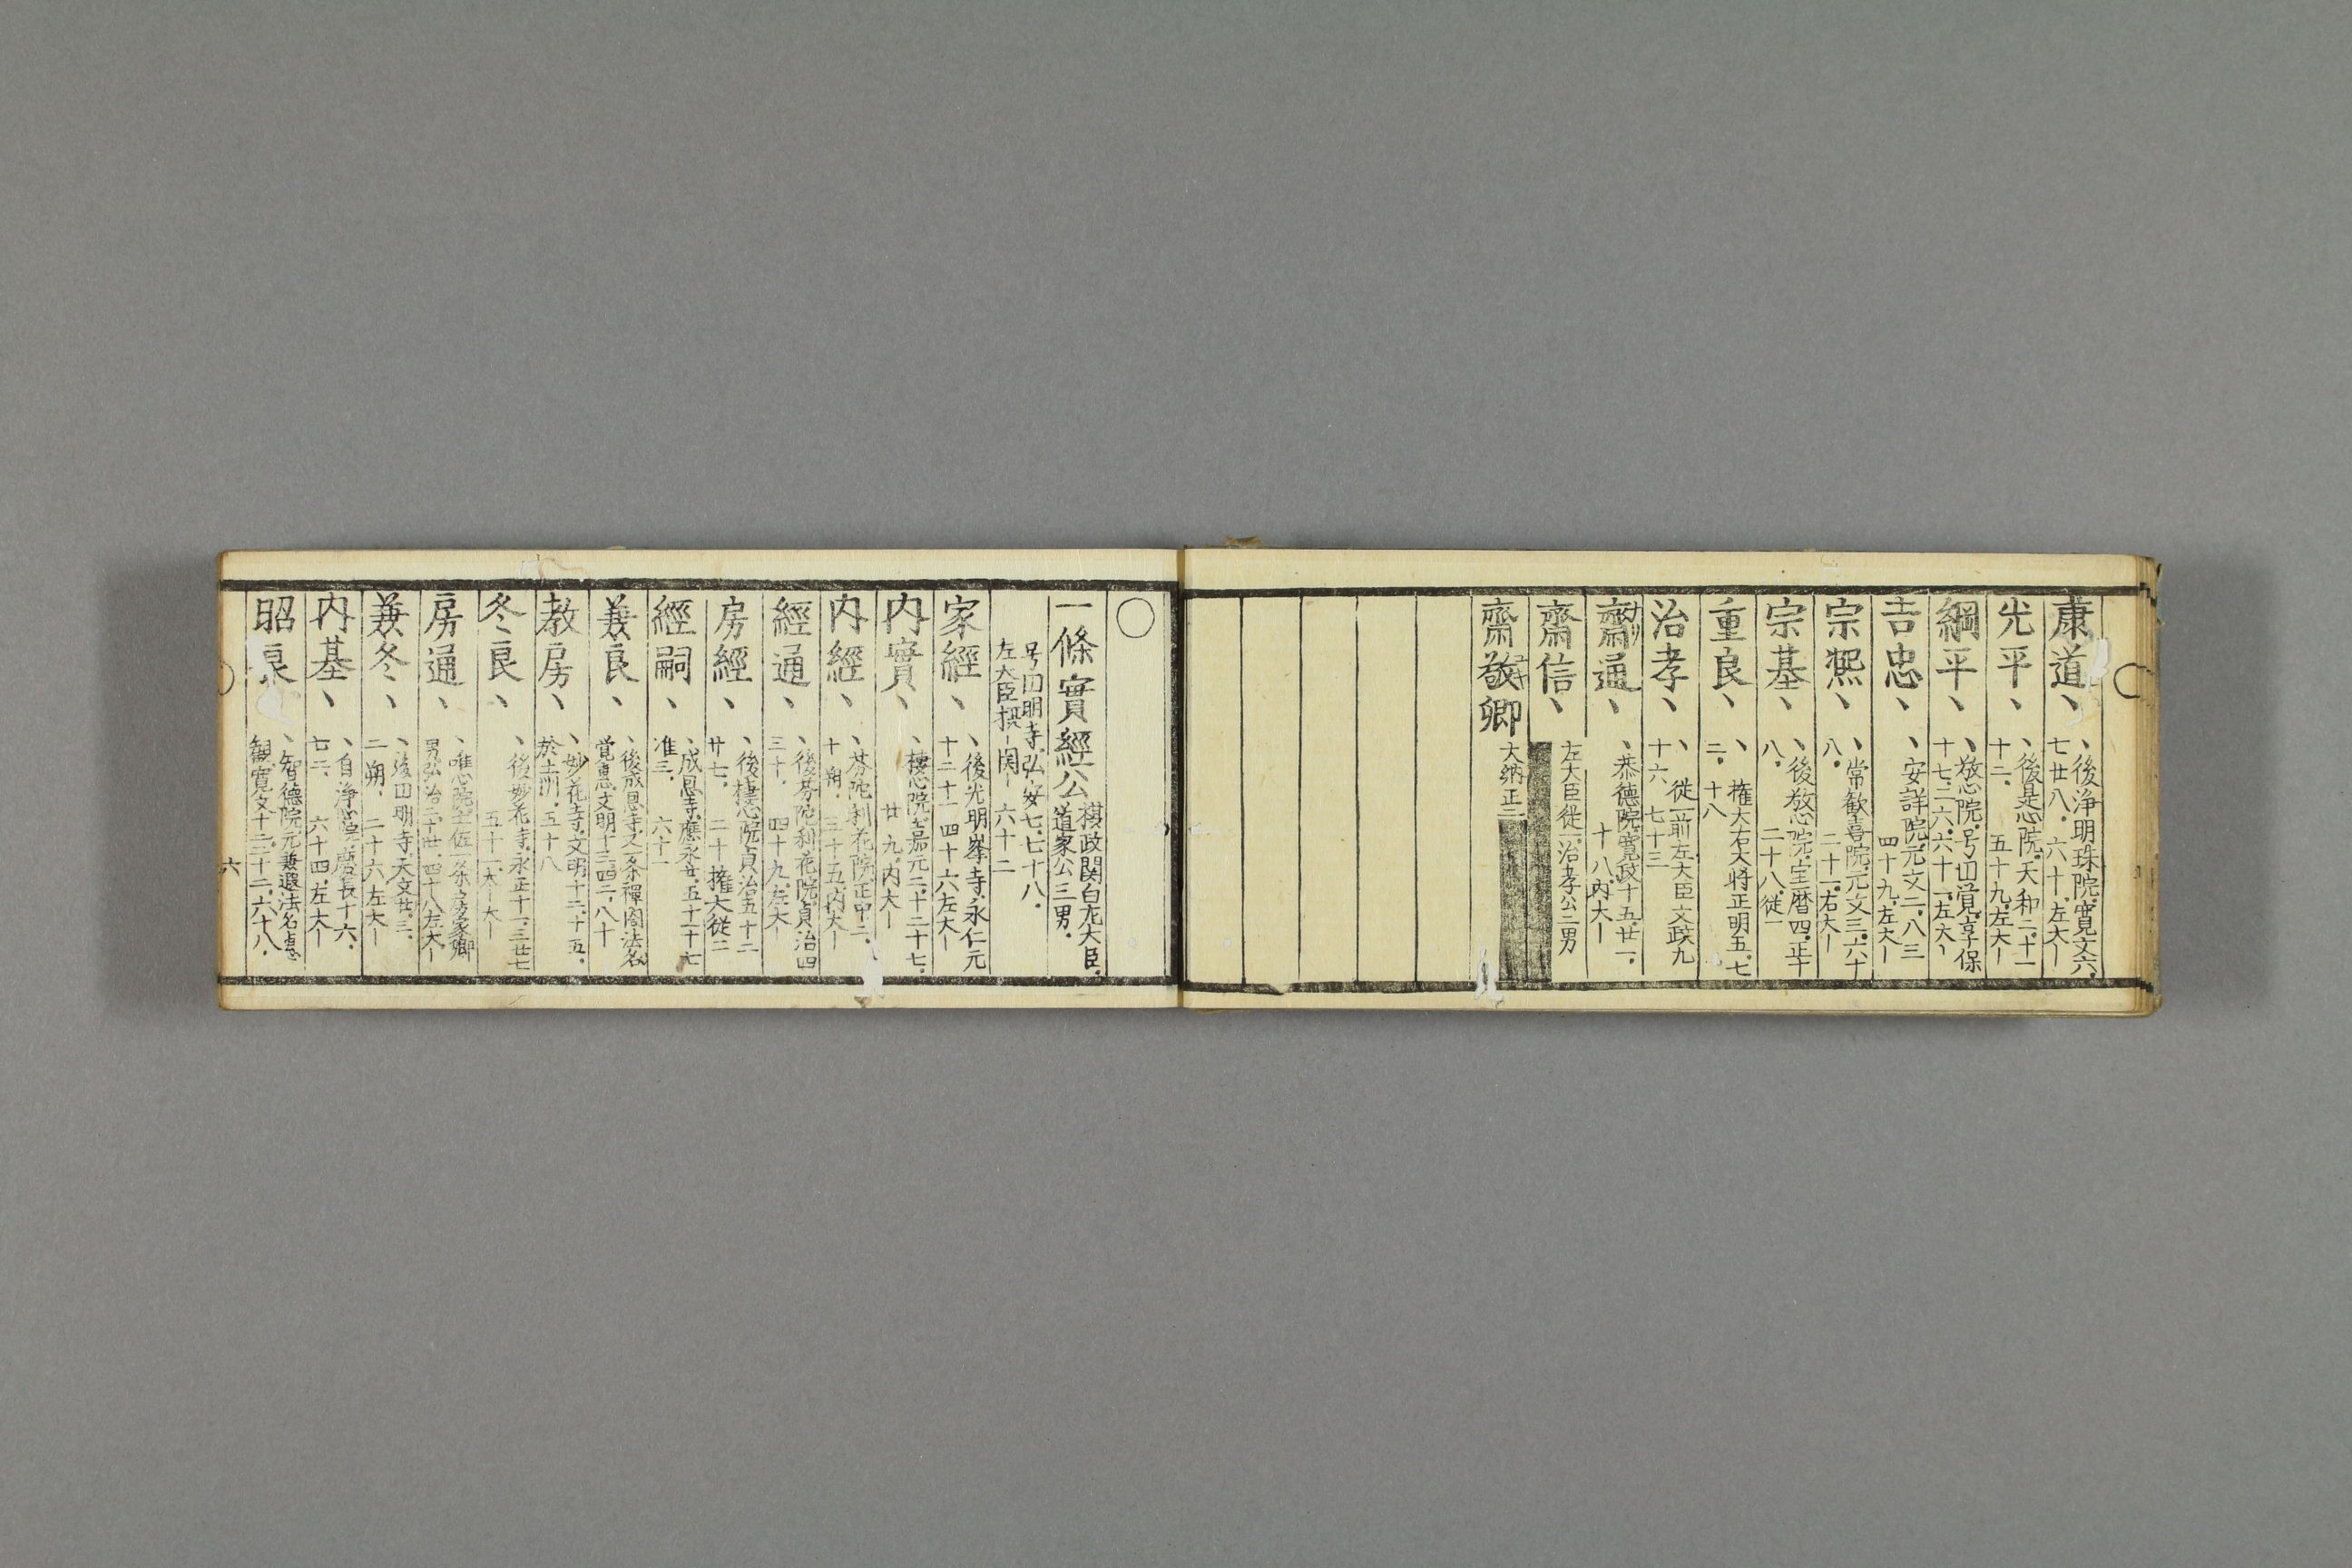 康道、
、後浄明珠院、寛文六、
七廿八、六十、左大ー
光平、
、後是心院、天和二、十一
十二、五十九、左大ー
綱平、
、敬心院、号円覚、享保
十七、二六、六十一、左大ー
吉忠、
、安詳院、元文二、八三
四十九、左大ー
宗熈、
、常歓喜院、元文三、六十
八、二十一、右大ー
宗基、
、後敬心院、宝暦四、正十
八、二十八、従一
重良、
、権大右大将正明五、七
二、十八
治孝、
、従一前左大臣文政九
十六 七十三
齊通、
、恭徳院、寛政十五、廿一、
十八、内大ー
齊信、
左大臣従一、治孝公三男
齊敬卿
大納正二
一條實經公
摂政関白左大臣、
道家公三男、
号円明寺、弘安七、七十八、
左大臣摂ー関ー 六十二
家經、
、後光明峯寺、永仁元
十二十一 四十六左大ー
内實、
、棲心院、嘉元二、十二十七、
廿九、内大ー
内經、
、芬陀利花院、正中二、
十朔、三十五、内大ー
經通、
、後芬陀利花院、貞治四
三十、四十九、左大ー
房經、
、後棲心院、貞治五十二
廿七、二十 権大従二
經嗣、
、成恩寺、應永廿五十一十七
准三、六十一
兼良、
、後成恩寺、又一条禅閤法名
覚恵、文明十三、四二、八十
教房、
、妙花寺、文明十二、十五、
於土州、五十八
冬良、
、後妙花寺、永正十一、三廿七
五十一、太ー大ー
房通、
、唯心院、土佐一条房家卿
男弘治二十卅、四十八左大ー
兼冬、
、後円明寺、天文廿三、
二朔、二十六左大ー
内基、
、自浄心院、慶長十六、
七二、六十四、左大ー
昭良
、智徳院、元兼遐法名恵
観寛文十二、二十二、六十八、
六